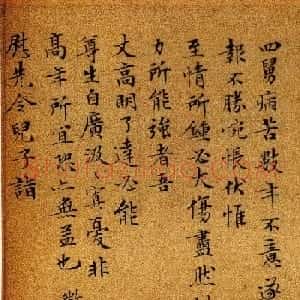 四舅病苦數年不意遂
報不勝惋悵伏惟
至情所鍾必大傷盡然
力所能強者吾
丈高明了達必能
尊生自廣汲寘憂非
高年所宜恐亦無益也
慰先令兒子詣